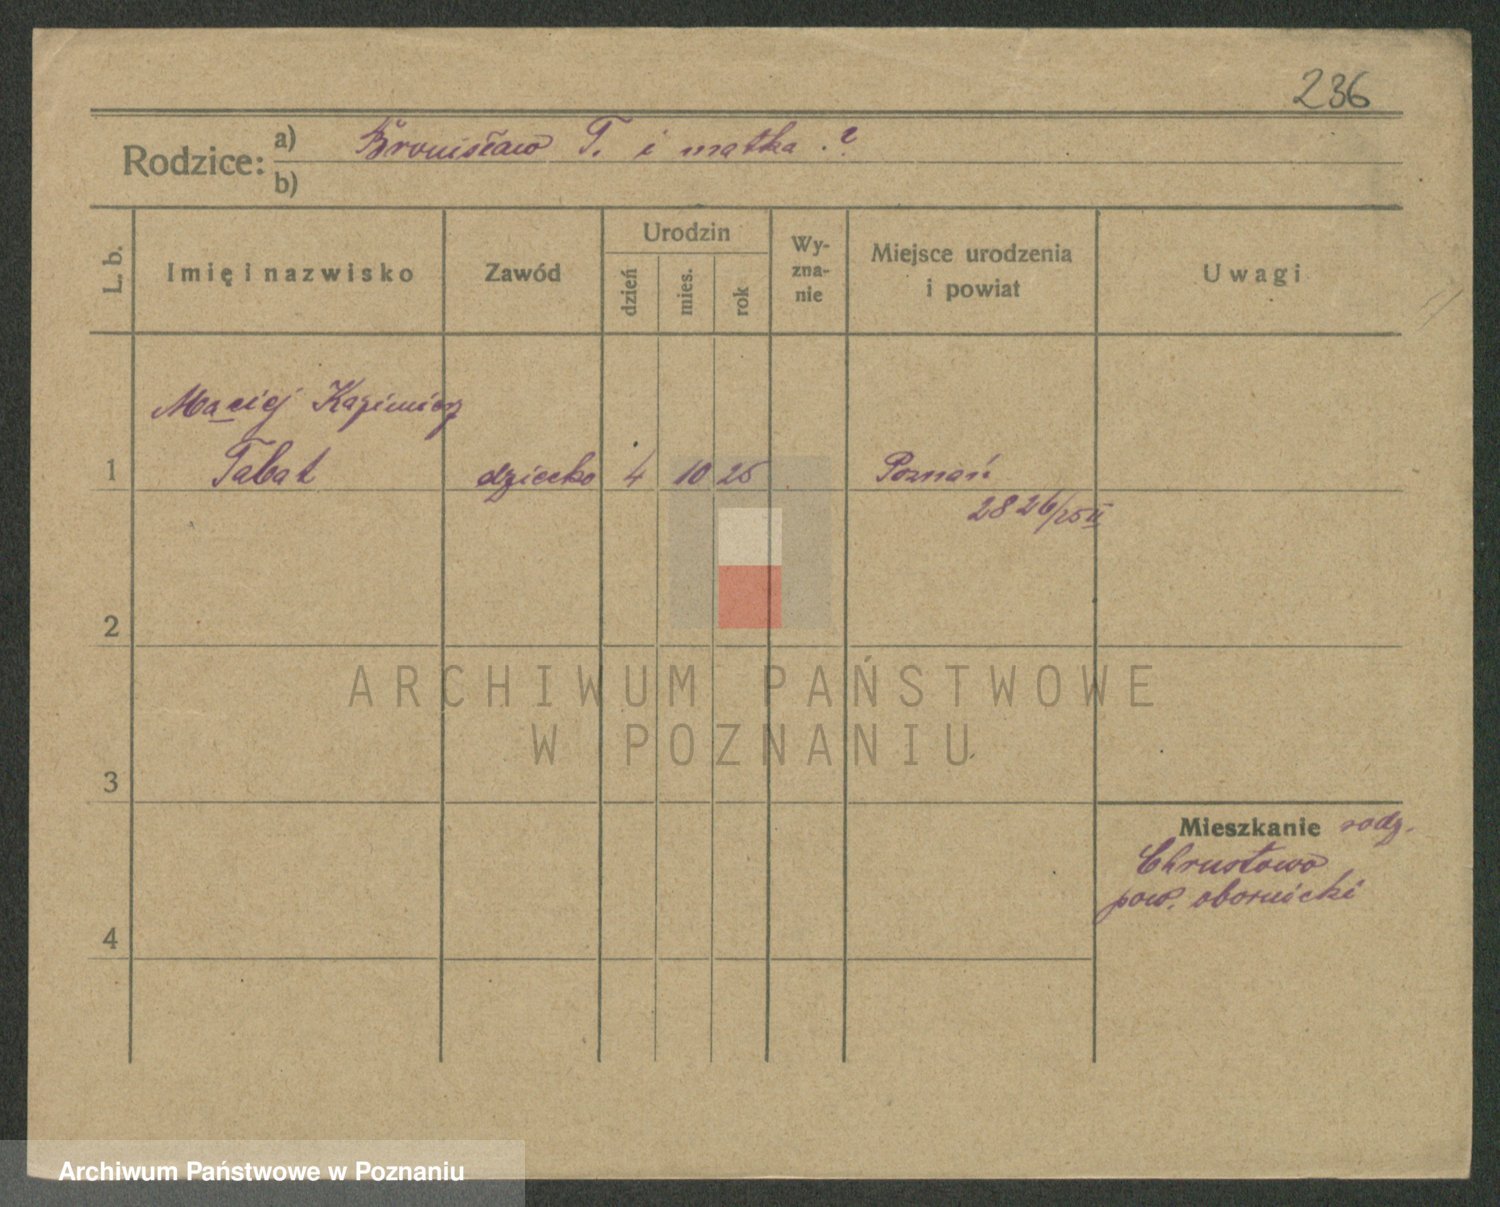 236
Rodzice: a) Bronisław T. i matka ?
b)
L. b. Imię i nazwisko Zawód Urodzin dzień mies. rok Wy-zna-nie Miejsce urodzenia i powiat Uwagi
Maciej Kazimierz
1 Tabat dziecko 4 10 25 Poznań
2826/25 II
2
3
Mieszkanie rodz.
Chrustowo
pow. obornicki
4
ARCHIWUM PAŃSTWOWE
W POZNANIU
Archiwum Państwowe w Poznaniu